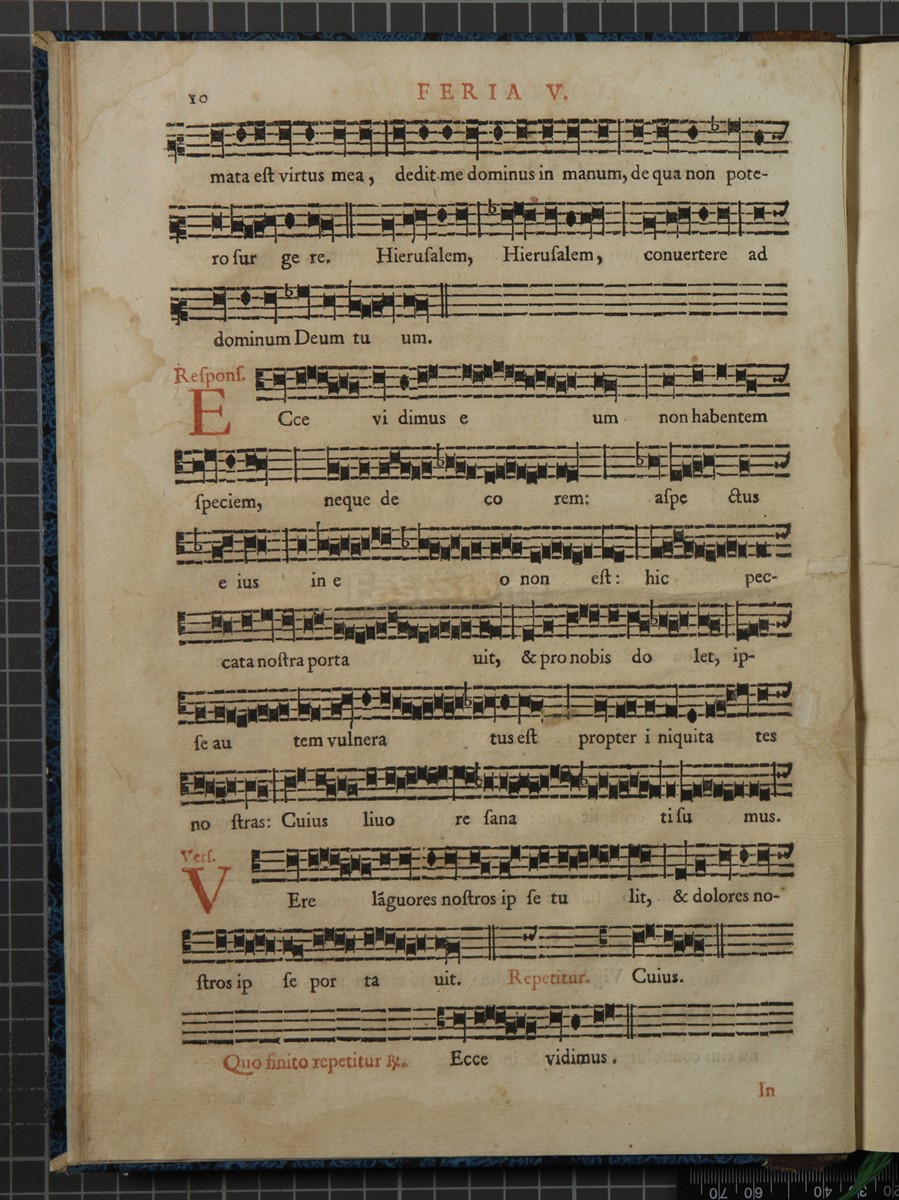 10 FERIA V.
mata eſt virtus mea, dedit me dominus in manum, de qua non pote-
ro ſur ge re. Hieruſalem, Hieruſalem, conuertere ad
dominum Deum tu um.
Reſponſ.
ECce vi dimus e um non habentem
ſpeciem, neque de co rem: aſpe ctus
e ius in e o non eſt: hic pec-
cata noſtra porta uit, & pro nobis do let, ip-
ſe au tem vulnera tus eſt propter i niquita tes
no ſtras: Cuius liuo re ſana ti ſu mus.
Verſ.
VEre lãguores noſtros ip ſe tu lit, & dolores no-
ſtros ip ſe por ta uit. Repetitur. Cuius.
Quo finito repetitur ℟. Ecce vidimus.
In
70 60 40 30 20